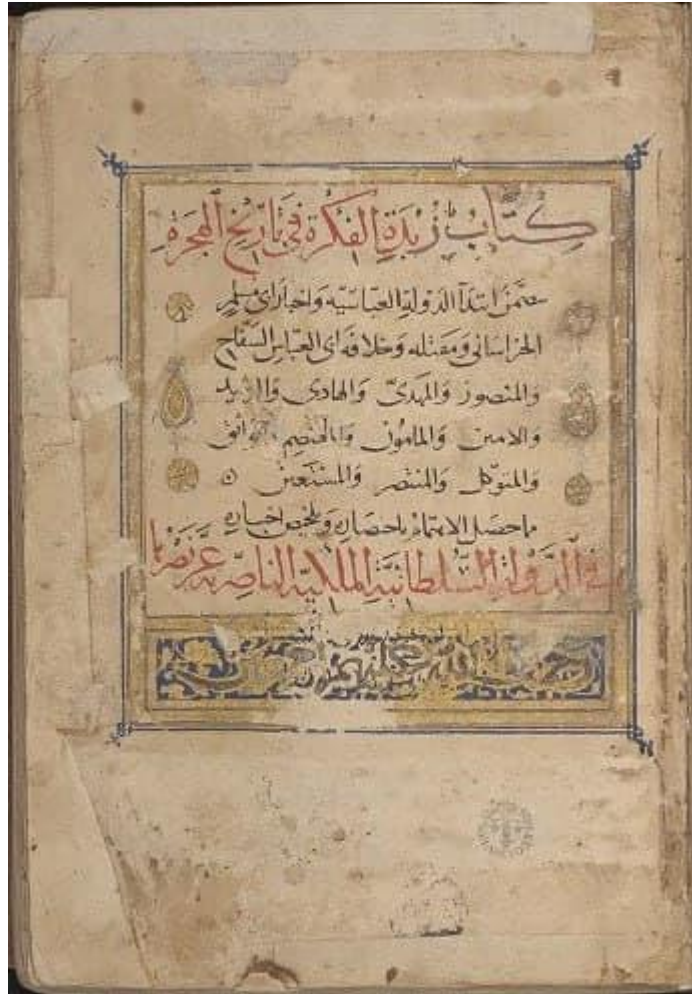 كتاب زبدة الفكرة في تاريخ الهجرة
ابتدآ الدولة العباسيه واخبار ابى مسلم
الخراسانى ومقتله وخلافه ابى العباس السفاح
والمنصور والمهدىّ والهادى والرشيد
والامين والمامون والمعتصم والواثق
والمتوكل والمنتصر والمستعين
ما حصل الاهتمام باحضاره وتلخيص اخباره
فى الدولة السلطانية الملكية الناصرية عز نصرها